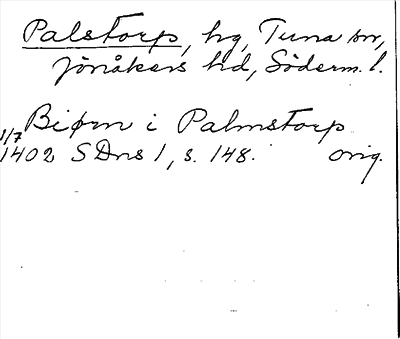 Palstorp, hg, Tuna sn,
Jönåkers hd, Söderm. l.
Biørn i Palmstorp
1/7
1402 SDns 1, s. 148. orig.